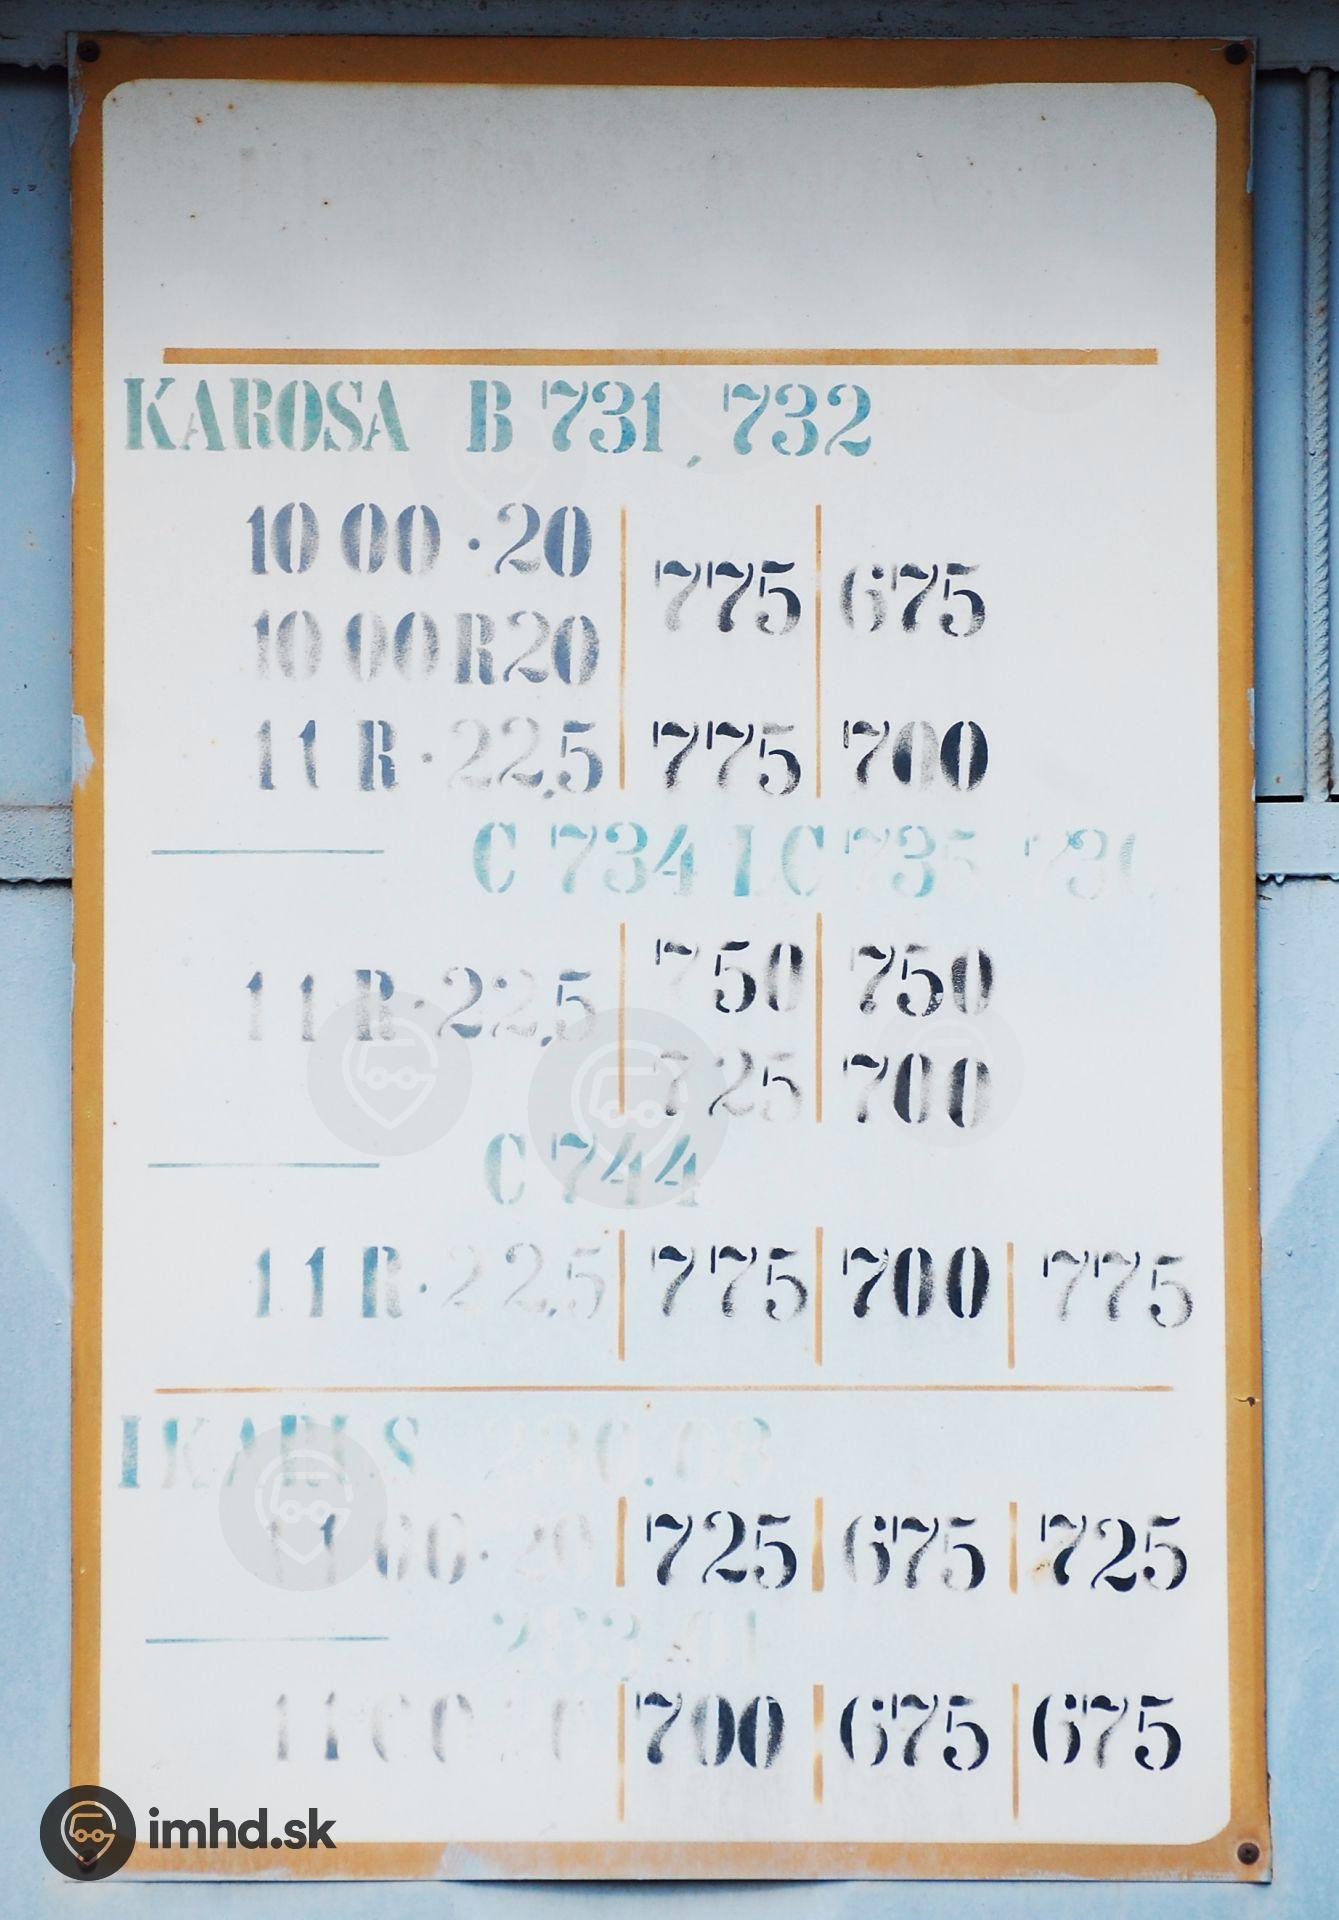 KAROSA B 731, 732
10 00 · 20
775 675
10 00 R20
11 R · 22,5 775 700
C 734 LC 735
11 R · 22,5 750 750
725 700
C 744
11 R · 22,5 775 700 775
IKARUS 280.08
11 00 · 20 725 675 725
11 00 700 675 675
imhd.sk